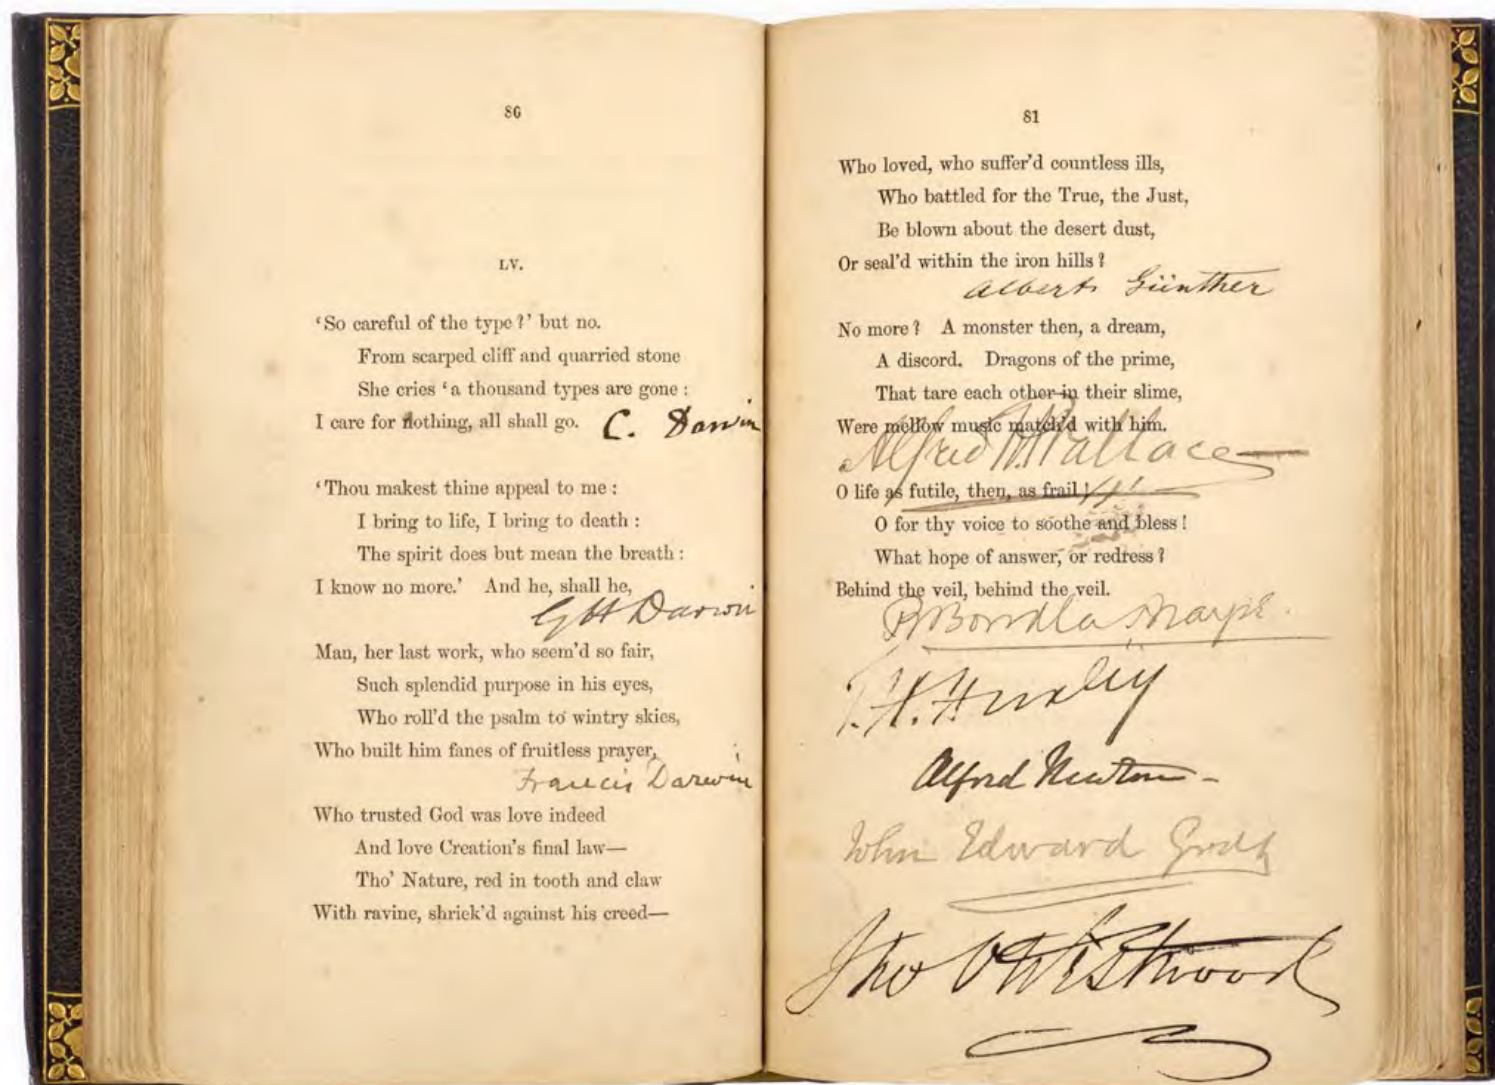 80
LV.
‘So careful of the type?’ but no.
From scarped cliff and quarried stone
She cries ‘a thousand types are gone:
I care for nothing, all shall go.
C. Darwin
‘Thou makest thine appeal to me:
I bring to life, I bring to death:
The spirit does but mean the breath:
I know no more.’ And he, shall he,
G H Darwin
Man, her last work, who seem’d so fair,
Such splendid purpose in his eyes,
Who roll’d the psalm to wintry skies,
Who built him fanes of fruitless prayer,
Francis Darwin
Who trusted God was love indeed
And love Creation’s final law—
Tho’ Nature, red in tooth and claw
With ravine, shriek’d against his creed—
81
Who loved, who suffer’d countless ills,
Who battled for the True, the Just,
Be blown about the desert dust,
Or seal’d within the iron hills?
Albert Günther
No more? A monster then, a dream,
A discord. Dragons of the prime,
That tare each other in their slime,
Were mellow music match’d with him.
Alfred R. Wallace
O life as futile, then, as frail!
O for thy voice to soothe and bless!
What hope of answer, or redress?
Behind the veil, behind the veil.
R Bowdler Sharpe.
T. H. Huxley
Alfred Newton
John Edward Gray
Jno O Westwood